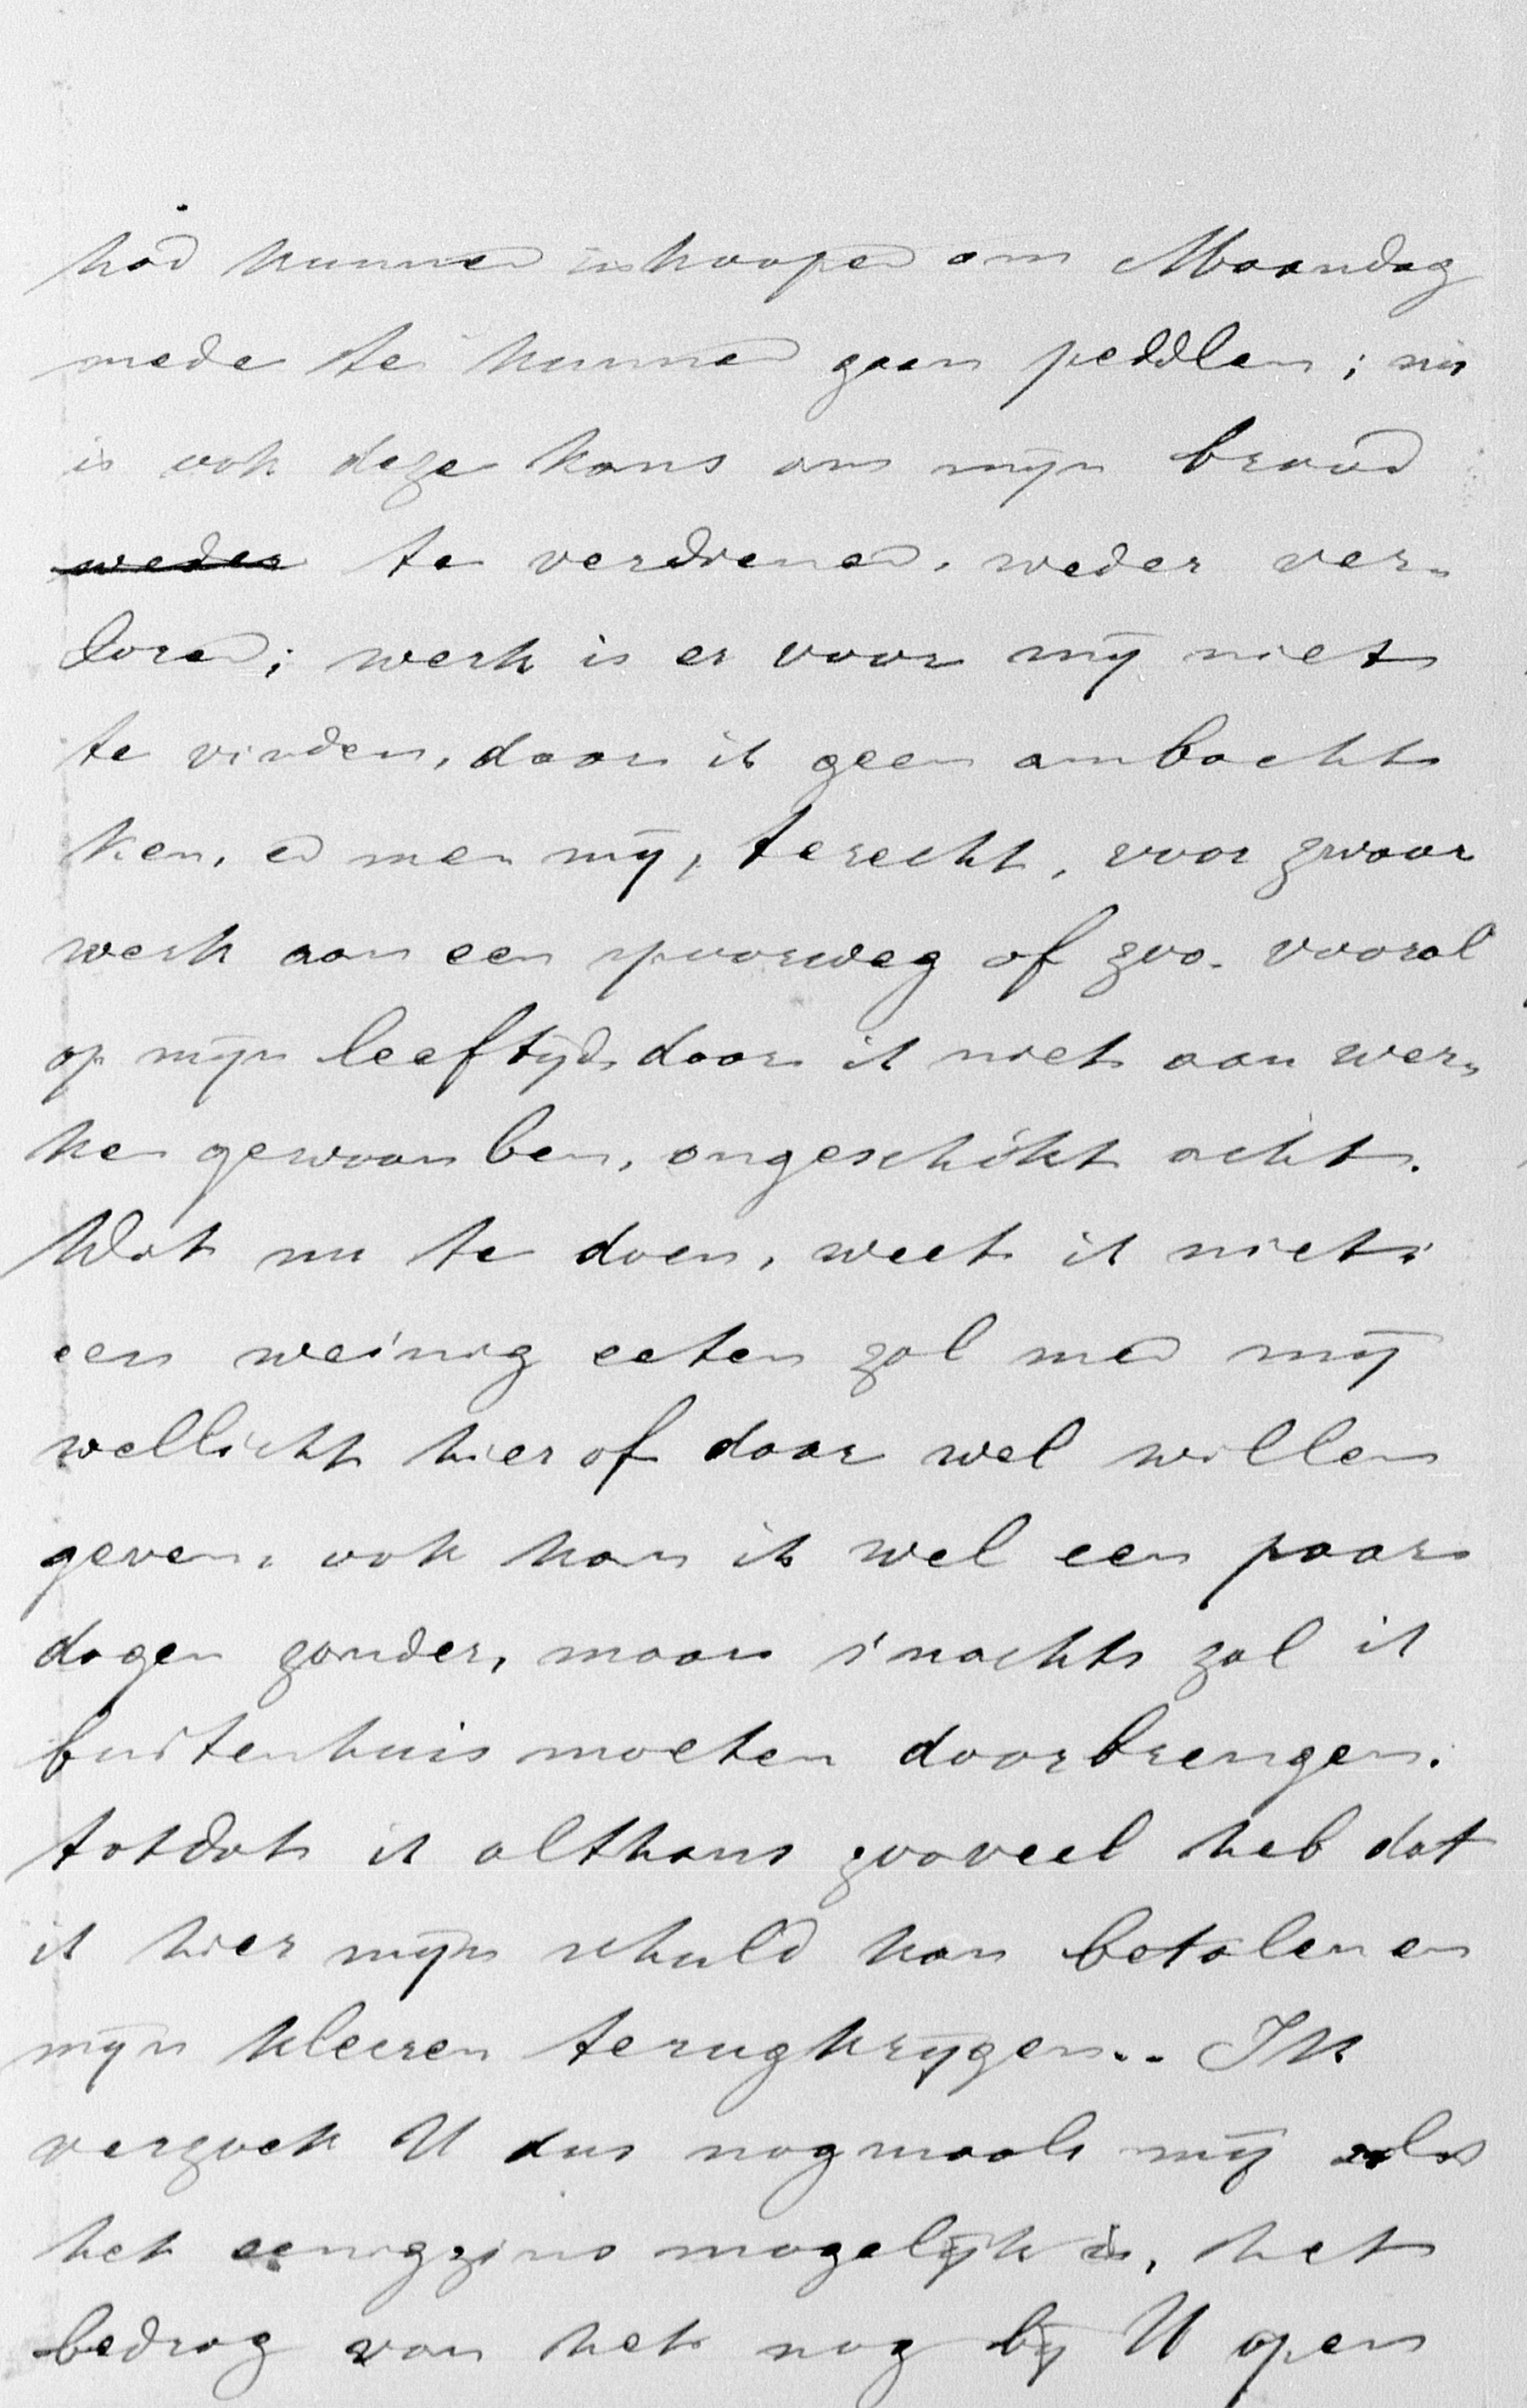 had kunnen inkoopen om Maandag
mede te kunnen gaan peddlen; nu
is ook deze kans om mijn brood
weder te verdienen, weder ver„
loren; werk is er voor mij niet
te vinden, daar ik geen ambacht
ken, en men mij, terecht, voor zwaar
werk aan een spoorweg of zoo. vooral
op mijn leeftijd, daar ik niet aan wer„
ken gewoon ben, ongeschikt acht.
Wat nu te doen, weet ik niet;
een weinig eeten zal men mij
wellicht hier of daar wel willen
geven, ook kan ik wel een paar
dagen zonder, maar s'nachts zal ik
buitenhuis moeten doorbrengen.
totdat ik althans zooveel heb dat
ik hier mijn schuld kan betalen en
mijn kleeren terugkrijgen.. Ik
verzoek U dus nogmaals mij als
het eenigzins mogelijk is, het
bedrag van het nog bij U open